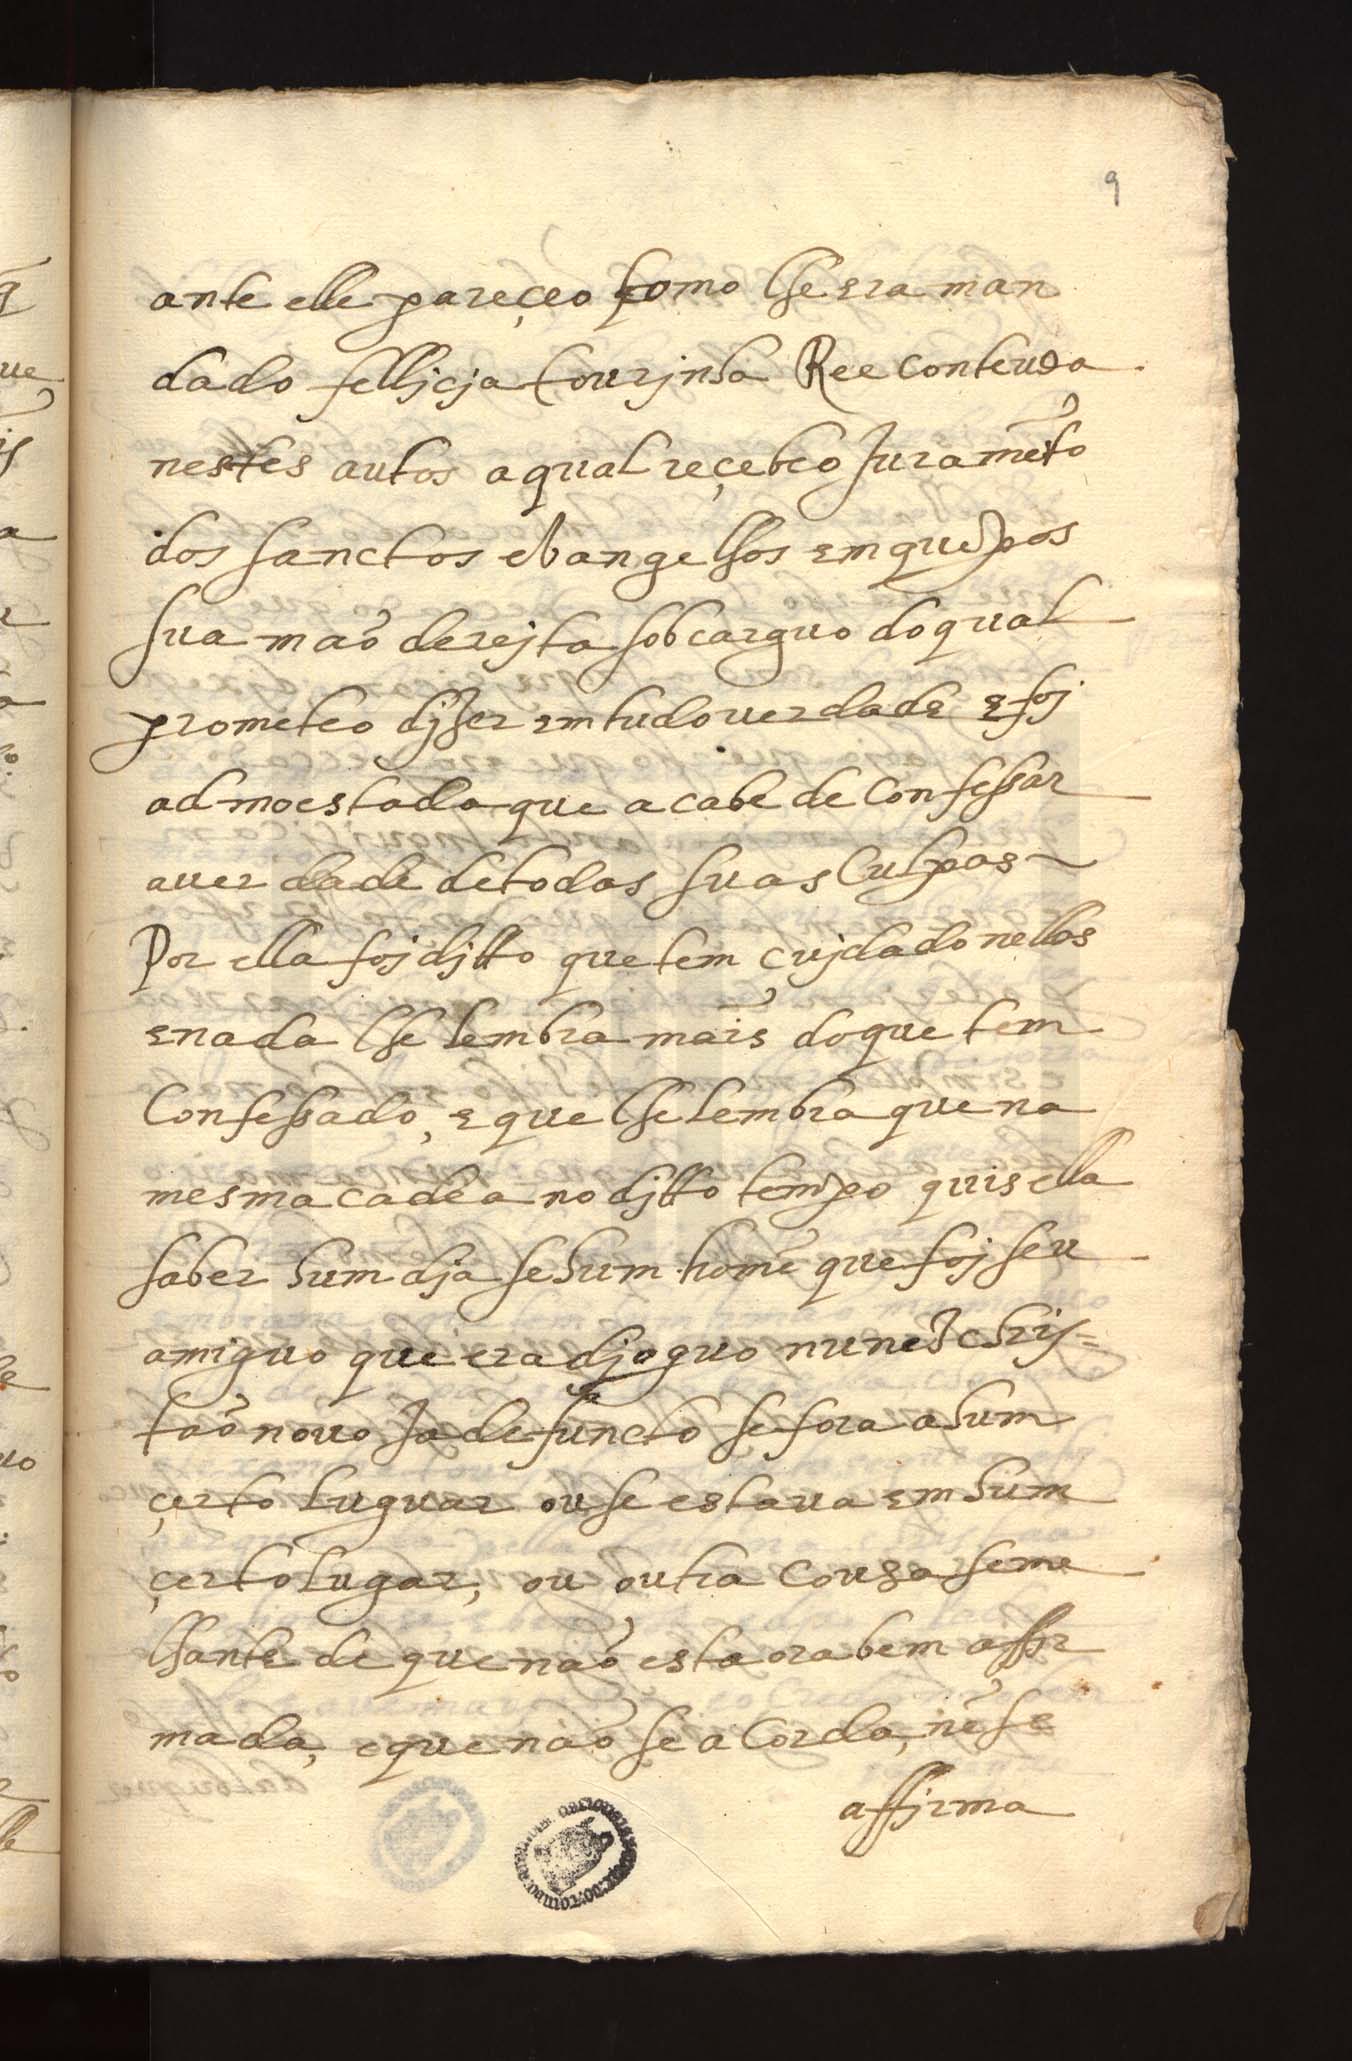 9
ante elle pareçeo como lhe era man
dado felljcja tourjnha Ree contenda
nestes autos a qual reçebeo Juramẽto
dos sanctos evangelhos em que pos
sua maõ derejta sob carguo do qual
prometeo djzer em tudo verdade e foj
admoestada que acabe de confessar
a verdade de todas suas culpas ~
Por ella foj djtto que tem cujdado nellas
e nada lhe lembra mais do que tem
confessado, e que lhe lembra que na
mesma cadea no djtto tempo quis ella
saber hum dja se hum homẽ que foj seu
amiguo que era djoguo nunez chris=
taõ nouo Ja defuncto se fora a hum
çerto luguar ou se estaua em hum
çerto lugar, ou outra couza seme
lhante de que naõ esta ora bem affir
mada, e que naõ se acorda, nẽ se
affirma